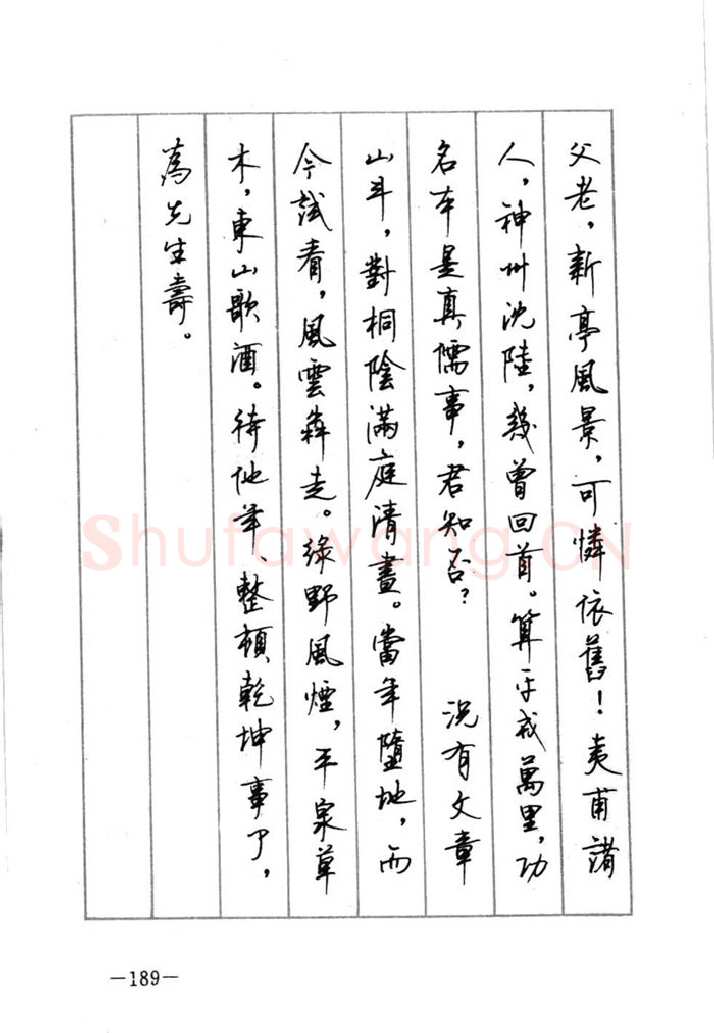 父老，新亭風景，可憐依舊！夷甫諸
人，神州沈陸，幾曾回首。算平戎萬里，功
名本是真儒事，君知否？　況有文章
山斗，對桐陰滿庭清晝。當年墮地，而
今試看，風雲犇走。綠野風煙，平泉草
木，東山歌酒。待他年、整頓乾坤事了，
為先生壽。
Shufawang.CN
—189—